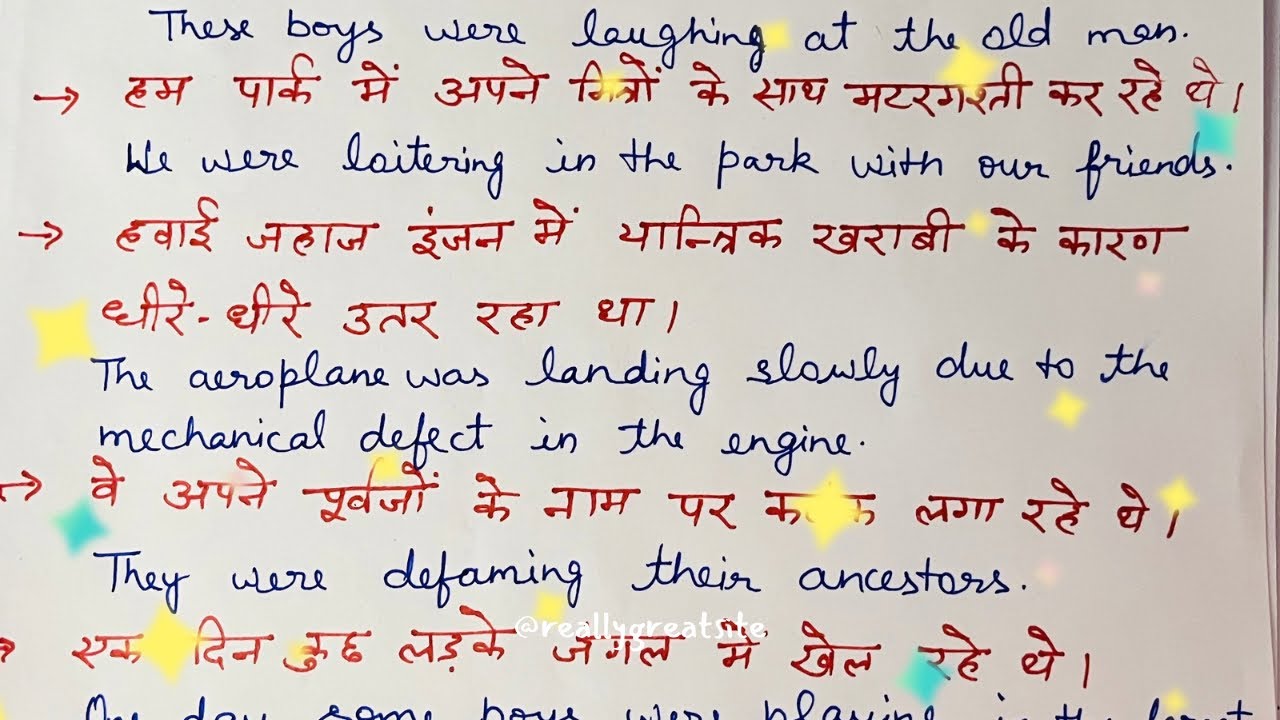 These boys were laughing at the old man.
→ हम पार्क में अपने मित्रों के साथ मटरगश्ती कर रहे थे।
We were loitering in the park with our friends.
→ हवाई जहाज इंजन में यान्त्रिक खराबी के कारण
धीरे-धीरे उतर रहा था।
The aeroplane was landing slowly due to the
mechanical defect in the engine.
→ वे अपने पूर्वजों के नाम पर लगा रहे थे।
They were defaming their ancestors.
@reallygreatsite
एक दिन कुछ लड़के जंगल में खेल रहे थे।
One day some boys were playing in the forest